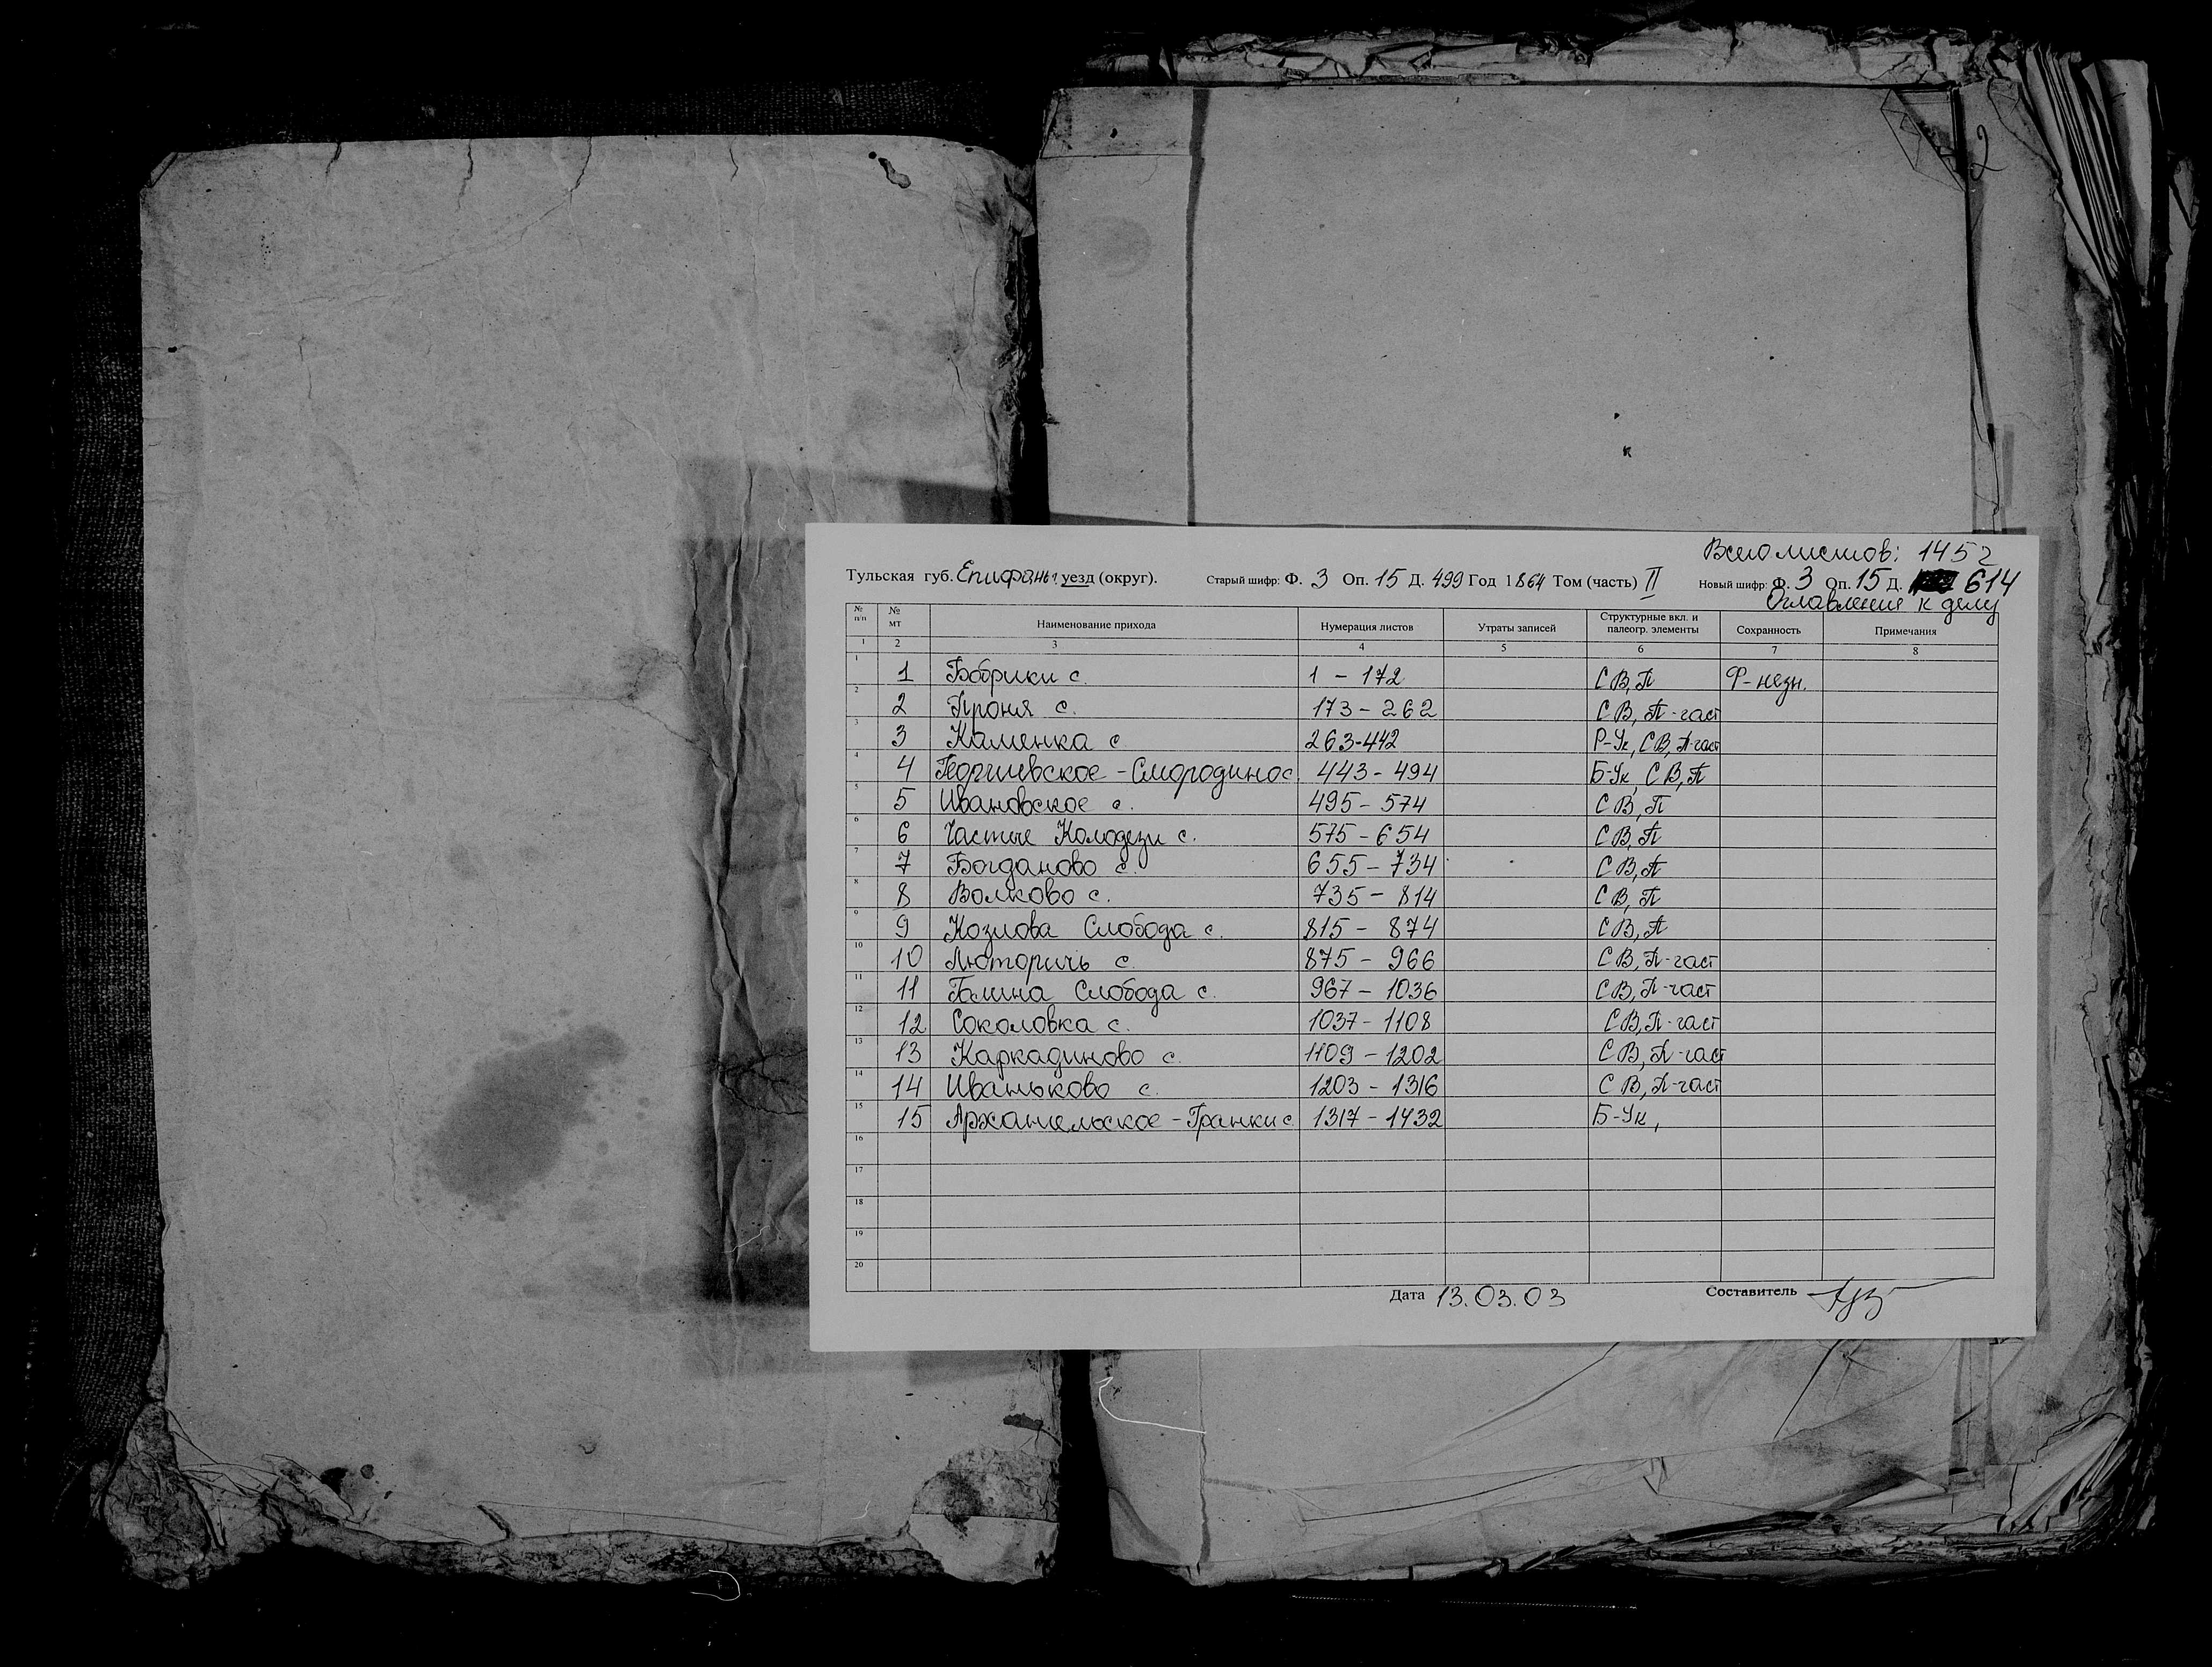 2
Всего листов: 1452
Тульская губ. Епифань г. уезд (округ). Старый шифр: Ф. 3 Оп. 15 Д. 499 Год 1864 Том (часть) II Новый шифр: Ф. 3 Оп. 15 Д. 614
Оглавление к делу
№ п/п № мт Наименование прихода Нумерация листов Утраты записей Структурные вкл. и палеогр. элементы Сохранность Примечания
1 2 3 4 5 6 7 8
1 1 Бобрики с. 1 - 172 СВ, П Ф-незн.
2 2 Проня с. 173 - 262 СВ, П-част
3 3 Каменка с 263-442 Р-Ук, СВ, П-част
4 4 Георгиевское-Смородино с. 443 - 494 Б-Ук, СВ, П
5 5 Ивановское с. 495 - 574 СВ, П
6 6 Частые Колодези с. 575 - 654 СВ, П
7 7 Богданово с. 655 - 734 СВ, П
8 8 Волково с. 735 - 814 СВ, П
9 9 Козлова Слобода с. 815 - 874 СВ, П
10 10 Люторичь с. 875 - 966 СВ, П-част
11 11 Галина Слобода с. 967 - 1036 СВ, П-част
12 12 Соколовка с. 1037 - 1108 СВ, П-част
13 13 Каркадиново с. 1109 - 1202 СВ, П-част
14 14 Иваньково с. 1203 - 1316 СВ, П-част
15 15 Архангельское-Гранки с 1317 - 1432 Б-Ук,
16
17
18
19
20
Дата 13.03.03 Составитель